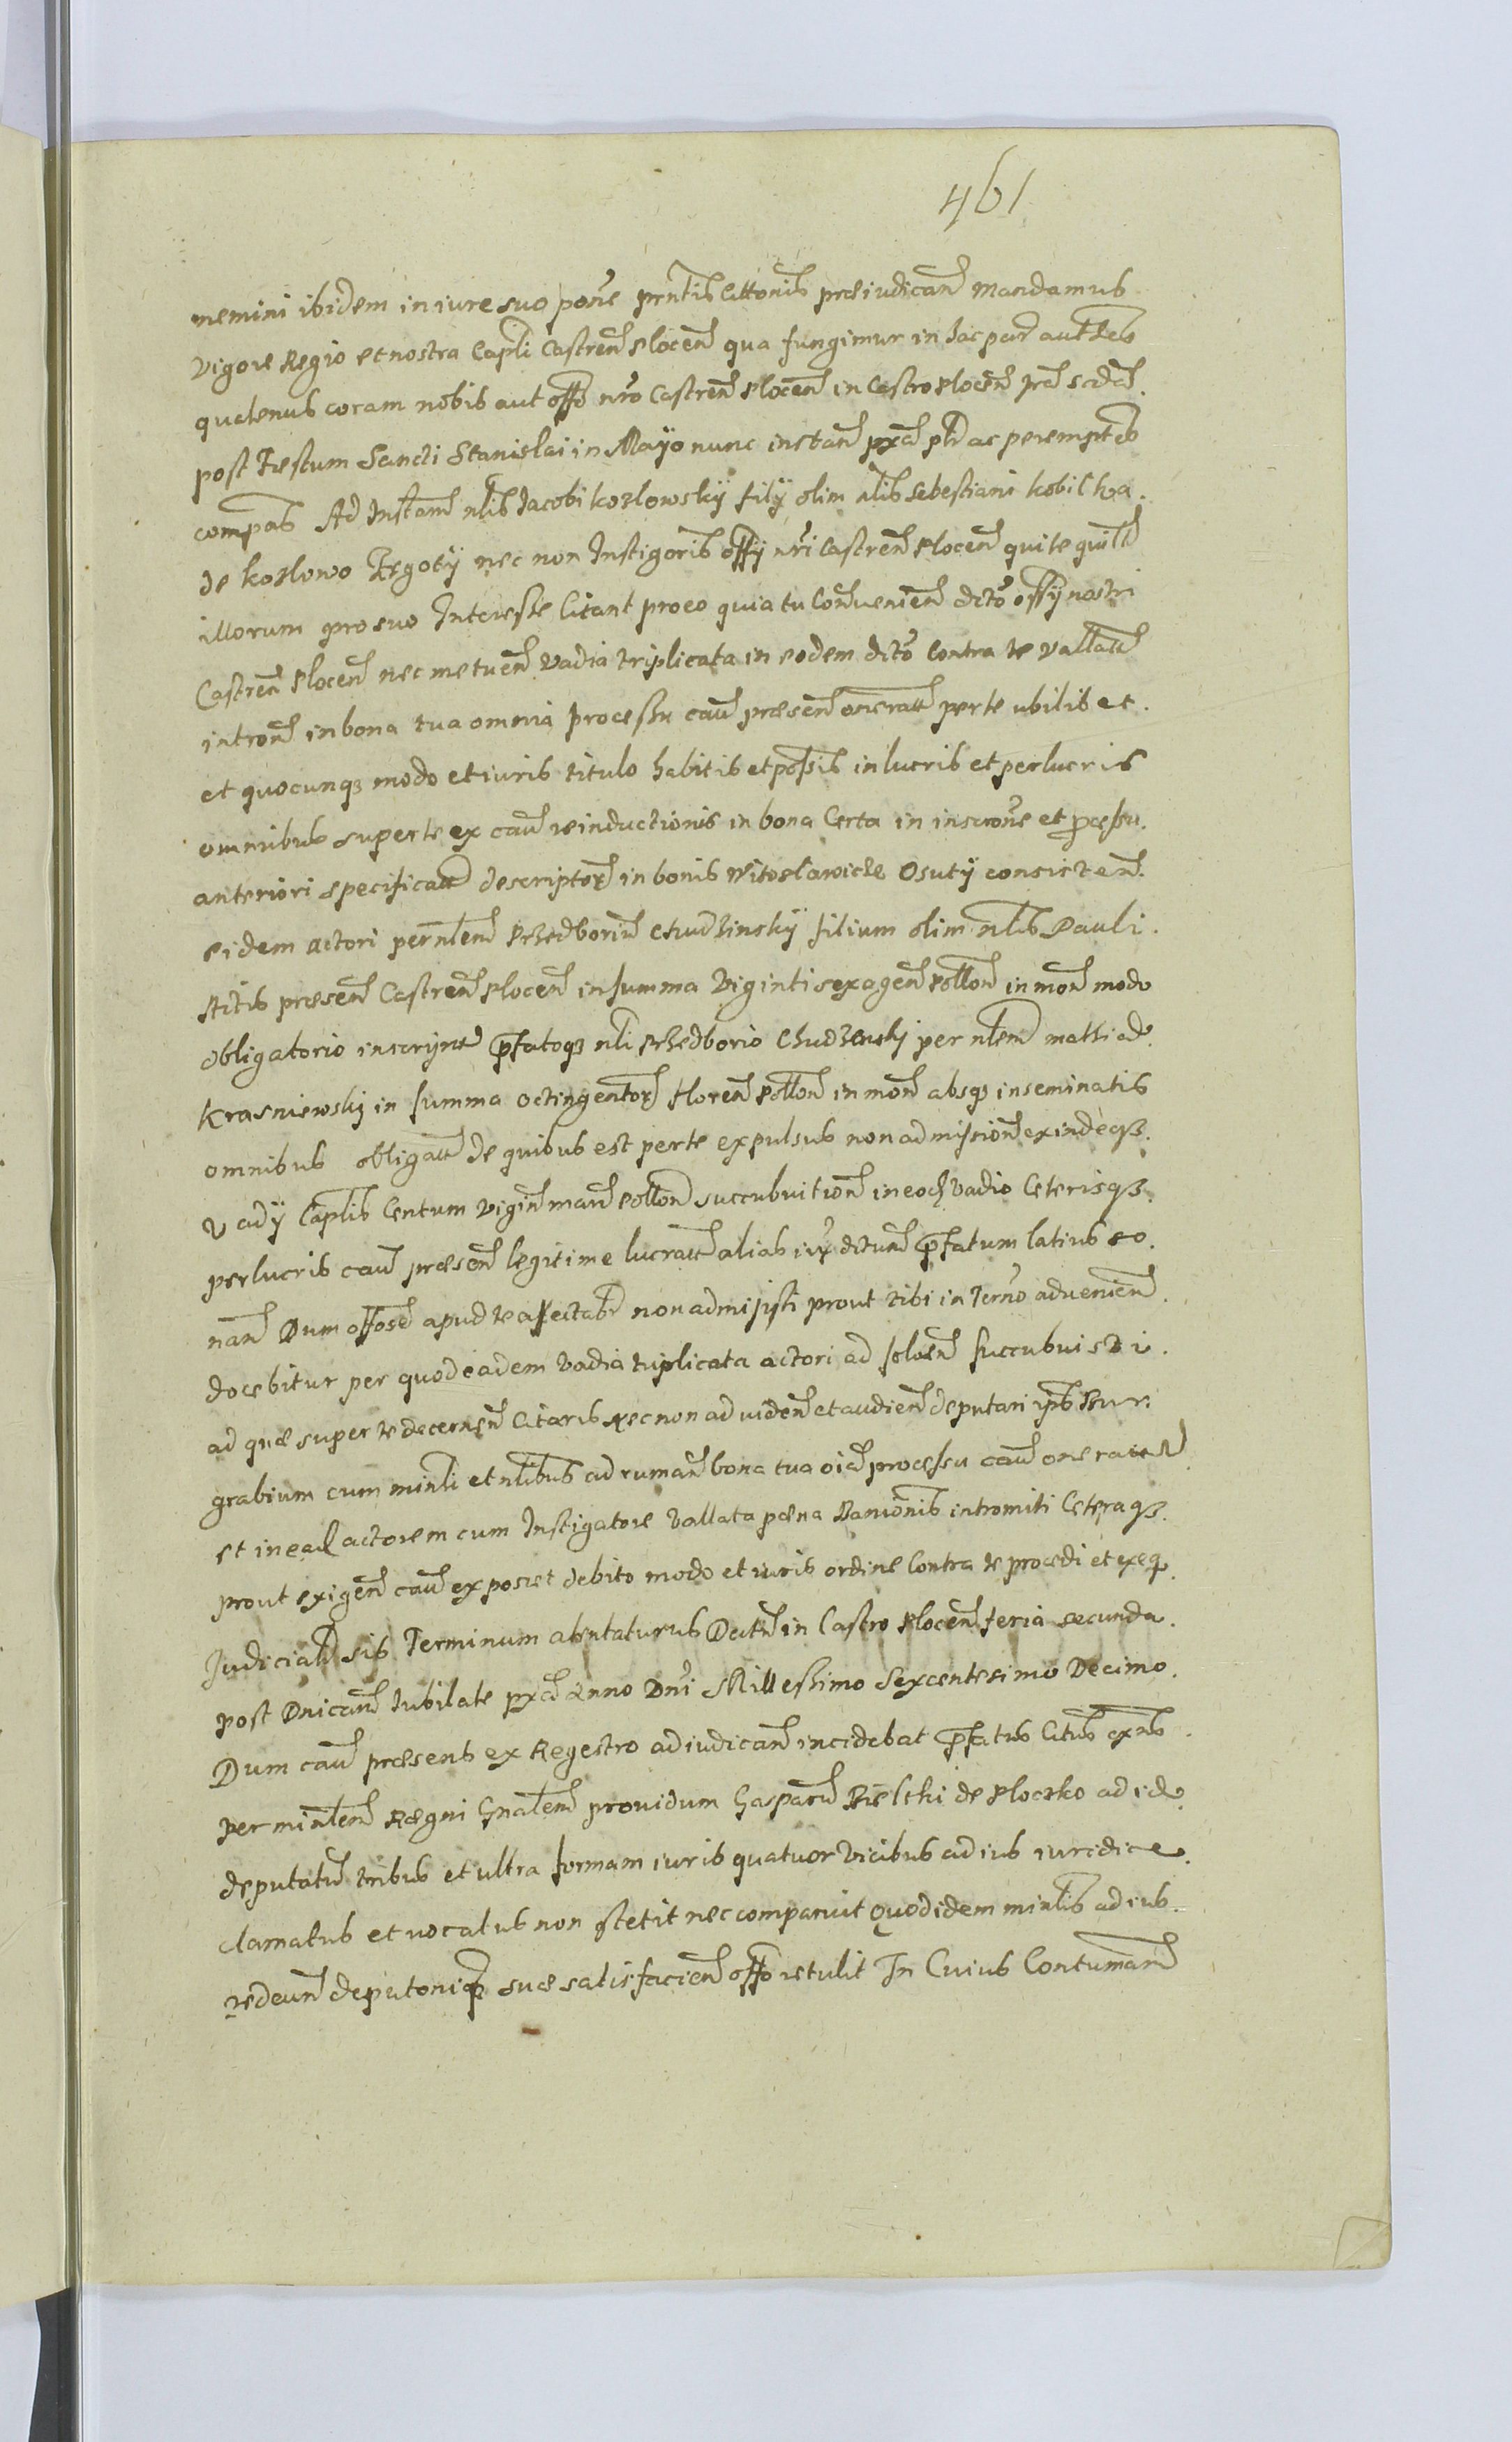 461
nemini ibidem in iure suo ponê prntis Cittonis præiudicañ Mandamus
vigore Regio et nostra Capli Castreñ Ploceñ qua fungimur in hac par auttte
quatenus coram nobis aut offo nro Castreñ Ploceñ in Castro Ploceñ
post Festum Sancti Stanislai in Mayo nunc instañ pxã ac perempte
compas Ad Instañ nlis Iacobi Kozlowskÿ filÿ olim nlis Sebestiani Kobilka.
de Kozlowo Pęgotÿ nec non Instigoris offÿ nri Castreñ Ploceñ qui te quilt
illorum pro suo Interesse Citant pro eo quia tu Conuenieñ dcto offÿ nostri
Castreñ Ploceñ nec metueñ vadia triplicata in eodem dcto Contra te vallatt
introñ in bona tua omnia processu cau præseñ oneratt per te ubilib et.
et quocunq modo et iuris titulo habitis et possis in lucris et perlucris
omnibus super te ex cau reinductionis in bona Certa in inscrône et pcessu.
anteriori specificatt descriptor in bonis Witoslawicze Osutÿ consisteñ.
eidem actori per nlem Przedboriu Chudzinskÿ filium olim nlis Pauli.
Actis præseñ Castreñ Ploceñ in summa Viginti sexageñ Polloñ in moñ modo
obligatorio inscrÿptt pfatoq nli Przedborio Chudzinski per nlem Mathiã
Krasniewski in summa octingentor floreñ Polloñ in moñ absq inseminatis
omnibus obligatt de quibus est per te expulsus non admissioñ exindeqz.
vadÿ Caplis Centum vigiñ marc Polloñ succubuitioñ in eoq vadio Ceterisqz.
perlucris cau præseñ legitime lucratt alias iux dctum pfatum latius so.
nañ Dum offose apud te affectabr non admisisti prout tibi in Terno advenieñ
docebitur per quod eadem vadia triplicata actori ad solueñ succubuisti.
ad quæ super te decerneñ Citaris Nec non ad uideñ et audieñ deputari ipsi Bur.
grabium cum minli et nlibus ad rumañ bona tua oiã processu cau oneratt
et in eaq actorem cum Instigatore vallata pæna Banionis intromitti Ceteraqz.
prout exigeñ cau exposcet debito modo et iuris ordine Contra te procedi et exeq.
Judicialr sis Terminum attentaturus Datt in Castro Ploceñ feria secunda.
post Dnicam Iubilate pxã Anno Dni Millesimo Sexcentesimo Decimo.
Dum cau præsens ex Regestro adiudicañ incidebat pfatus Citus exns
per minlem Regni Gnalem providum Gasparu Bielski de Ploczko ad id
deputatu tribus et ultra formam iuris quatuor vicibus ad ius iuredice
clamatus et vocatus non stetit nec comparuit Quod idem minlis ad ius.
redeuñ deputoniq suæ satisfacieñ offo retulit In Cuius Contumañ